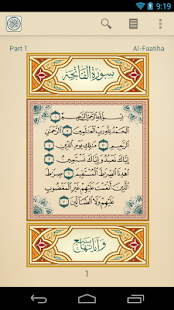 9:19
Part 1
Al-Faatiha
سورة الفاتحة
بِسْمِ اللَّهِ الرَّحْمَٰنِ الرَّحِيمِ
الْحَمْدُ لِلَّهِ رَبِّ الْعَالَمِينَ الرَّحْمَٰنِ
الرَّحِيمِ مَٰلِكِ يَوْمِ الدِّينِ
إِيَّاكَ نَعْبُدُ وَإِيَّاكَ نَسْتَعِينُ
اهْدِنَا الصِّرَاطَ الْمُسْتَقِيمَ
صِرَاطَ الَّذِينَ أَنْعَمْتَ عَلَيْهِمْ غَيْرِ الْمَغْضُوبِ
عَلَيْهِمْ وَلَا الضَّالِّينَ
وآياتها سبع
1